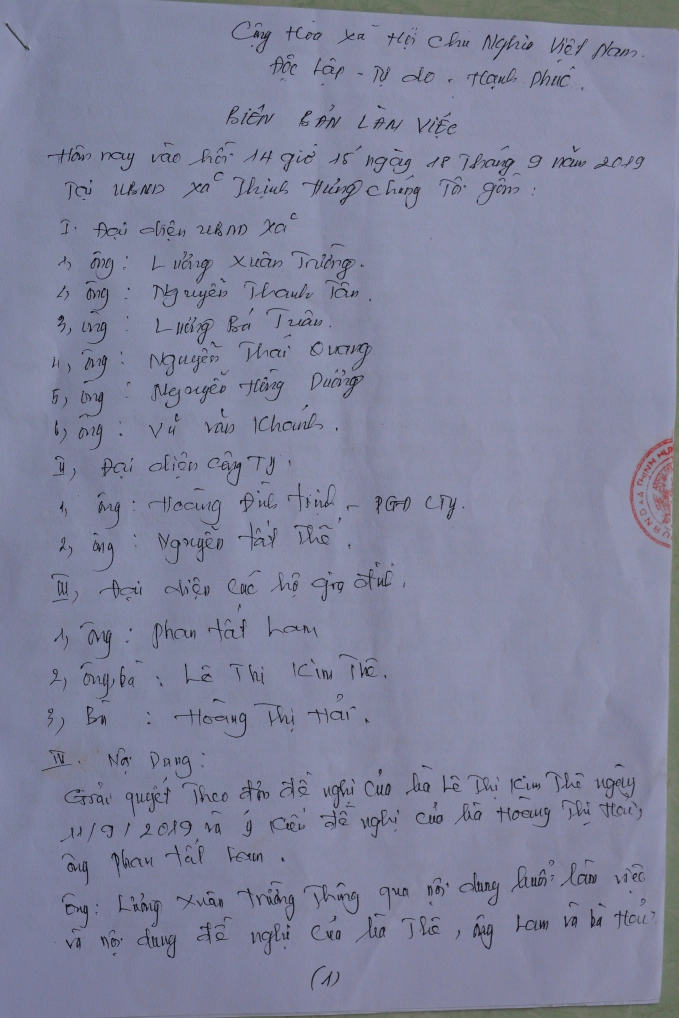 Cộng Hòa xã Hội Chủ Nghĩa Việt Nam.
Độc Lập - Tự do - Hạnh Phúc.
BIÊN BẢN LÀM VIỆC
Hôm nay vào hồi 14 giờ 15' ngày 18 Tháng 9 năm 2019
Tại UBND xã Thịnh Hưng chúng Tôi gồm:
I. Đại diện UBND xã
1, ông: Lương Xuân Trường.
2, ông: Nguyễn Thanh Tân.
3, ông: Lương Bá Tuân.
4, ông: Nguyễn Thái Quang
5, ông: Nguyễn Hồng Dương
6, ông: Vũ Văn Khánh.
II, Đại diện Công Ty.
1, ông: Hoàng Đình Trịnh - PGĐ CTy.
2, ông: Nguyễn Tất Thế.
III, Đại diện các hộ gia đình.
1, ông: Phan Tất Lam
2, ông, bà: Lê Thị Kim Thê.
3, Bà: Hoàng Thị Hải.
IV. Nội Dung:
Giải quyết Theo đơn đề nghị của bà Lê Thị Kim Thê ngày
11/9/2019 và ý kiến đề nghị của bà Hoàng Thị Hải,
ông Phan Tất Lam.
ông: Lương Xuân Trường Thông qua nội dung buổi làm việc
và nội dung đề nghị của bà Thê, ông Lam và bà Hải.
(1)